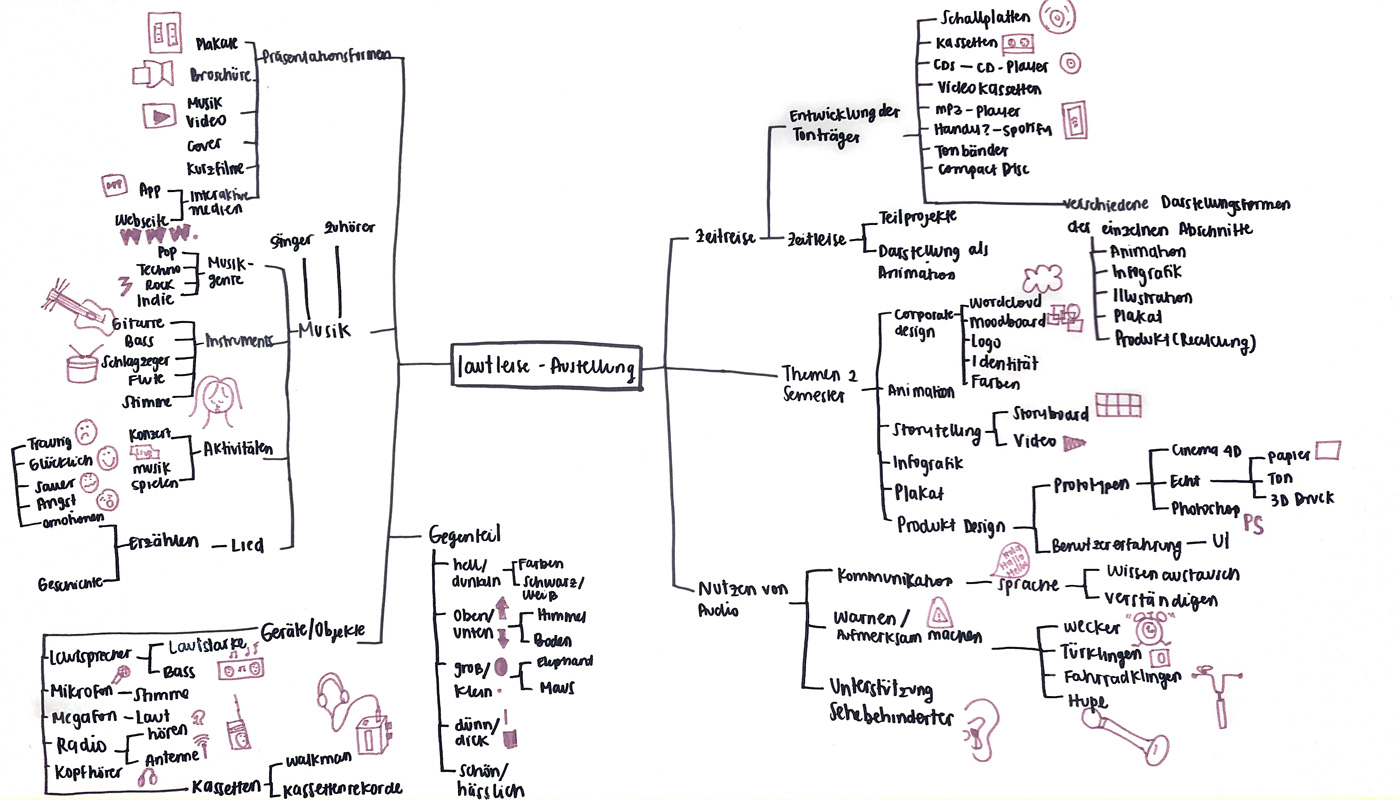 lautleise - Austellung
Präsentationsformen
Plakate
Broschüre
Musik
Video
Cover
Kurzfilme
Interaktive
medien
App
APP
Webseite
WWW.
Musik
Singer
Zuhörer
Musik-
genre
Pop
Techno
Rock
Indie
Instruments
Gitarre
Bass
Schlagzeger
Flute
Stimme
Aktivitäten
Konzert
musik
spielen
Lied
Erzählen
emotionen
Traurig
Glücklich
Sauer
Angst
Geschichte
Gegenteil
hell/
dunkeln
Farben
Schwarz/
Weiß
Oben/
unten
Himmel
Boden
groß/
Klein
Elephand
Maus
dünn/
dick
schön/
hässlich
Geräte/Objekte
Lautsprecher
Lautstärke
Bass
Mikrofon - Stimme
Megafon - Laut
Radio
hören
Antenne
Kopfhörer
Kassetten
Walkman
Kassettenrekorde
Zeitreise
Entwicklung der
Tonträger
Schallplatten
Kassetten
CDs - CD-Player
Video Kassetten
mp3 - Player
Handy? - Spotify
Tonbänder
Compact Disc
verschiedene Darstellungsformen
des einzelnen Abschnitte
Animation
Infografik
Illustration
Plakat
Produkt (Realität)
Zeitleise
Teilprojekte
Darstellung als
Animation
Themen 2
Semester
Corporate
design
Wordcloud
Moodboard
Logo
Identität
Farben
Animation
Storytelling
Storyboard
Video
Infografik
Plakat
Produkt Design
Prototypen
Cinema 4D
Echt
Papier
Ton
3D Druck
Photoshop
PS
Benutzererfahrung - UI
Nutzen von
Audio
Kommunikation - Sprache
Hola
Hallo
Hello
Wissen austausch
verständigen
Warnen/
Aufmerksam machen
Wecker
Türklingen
Fahrradklingen
Hupe
Unterstützung
Sehebehinderter